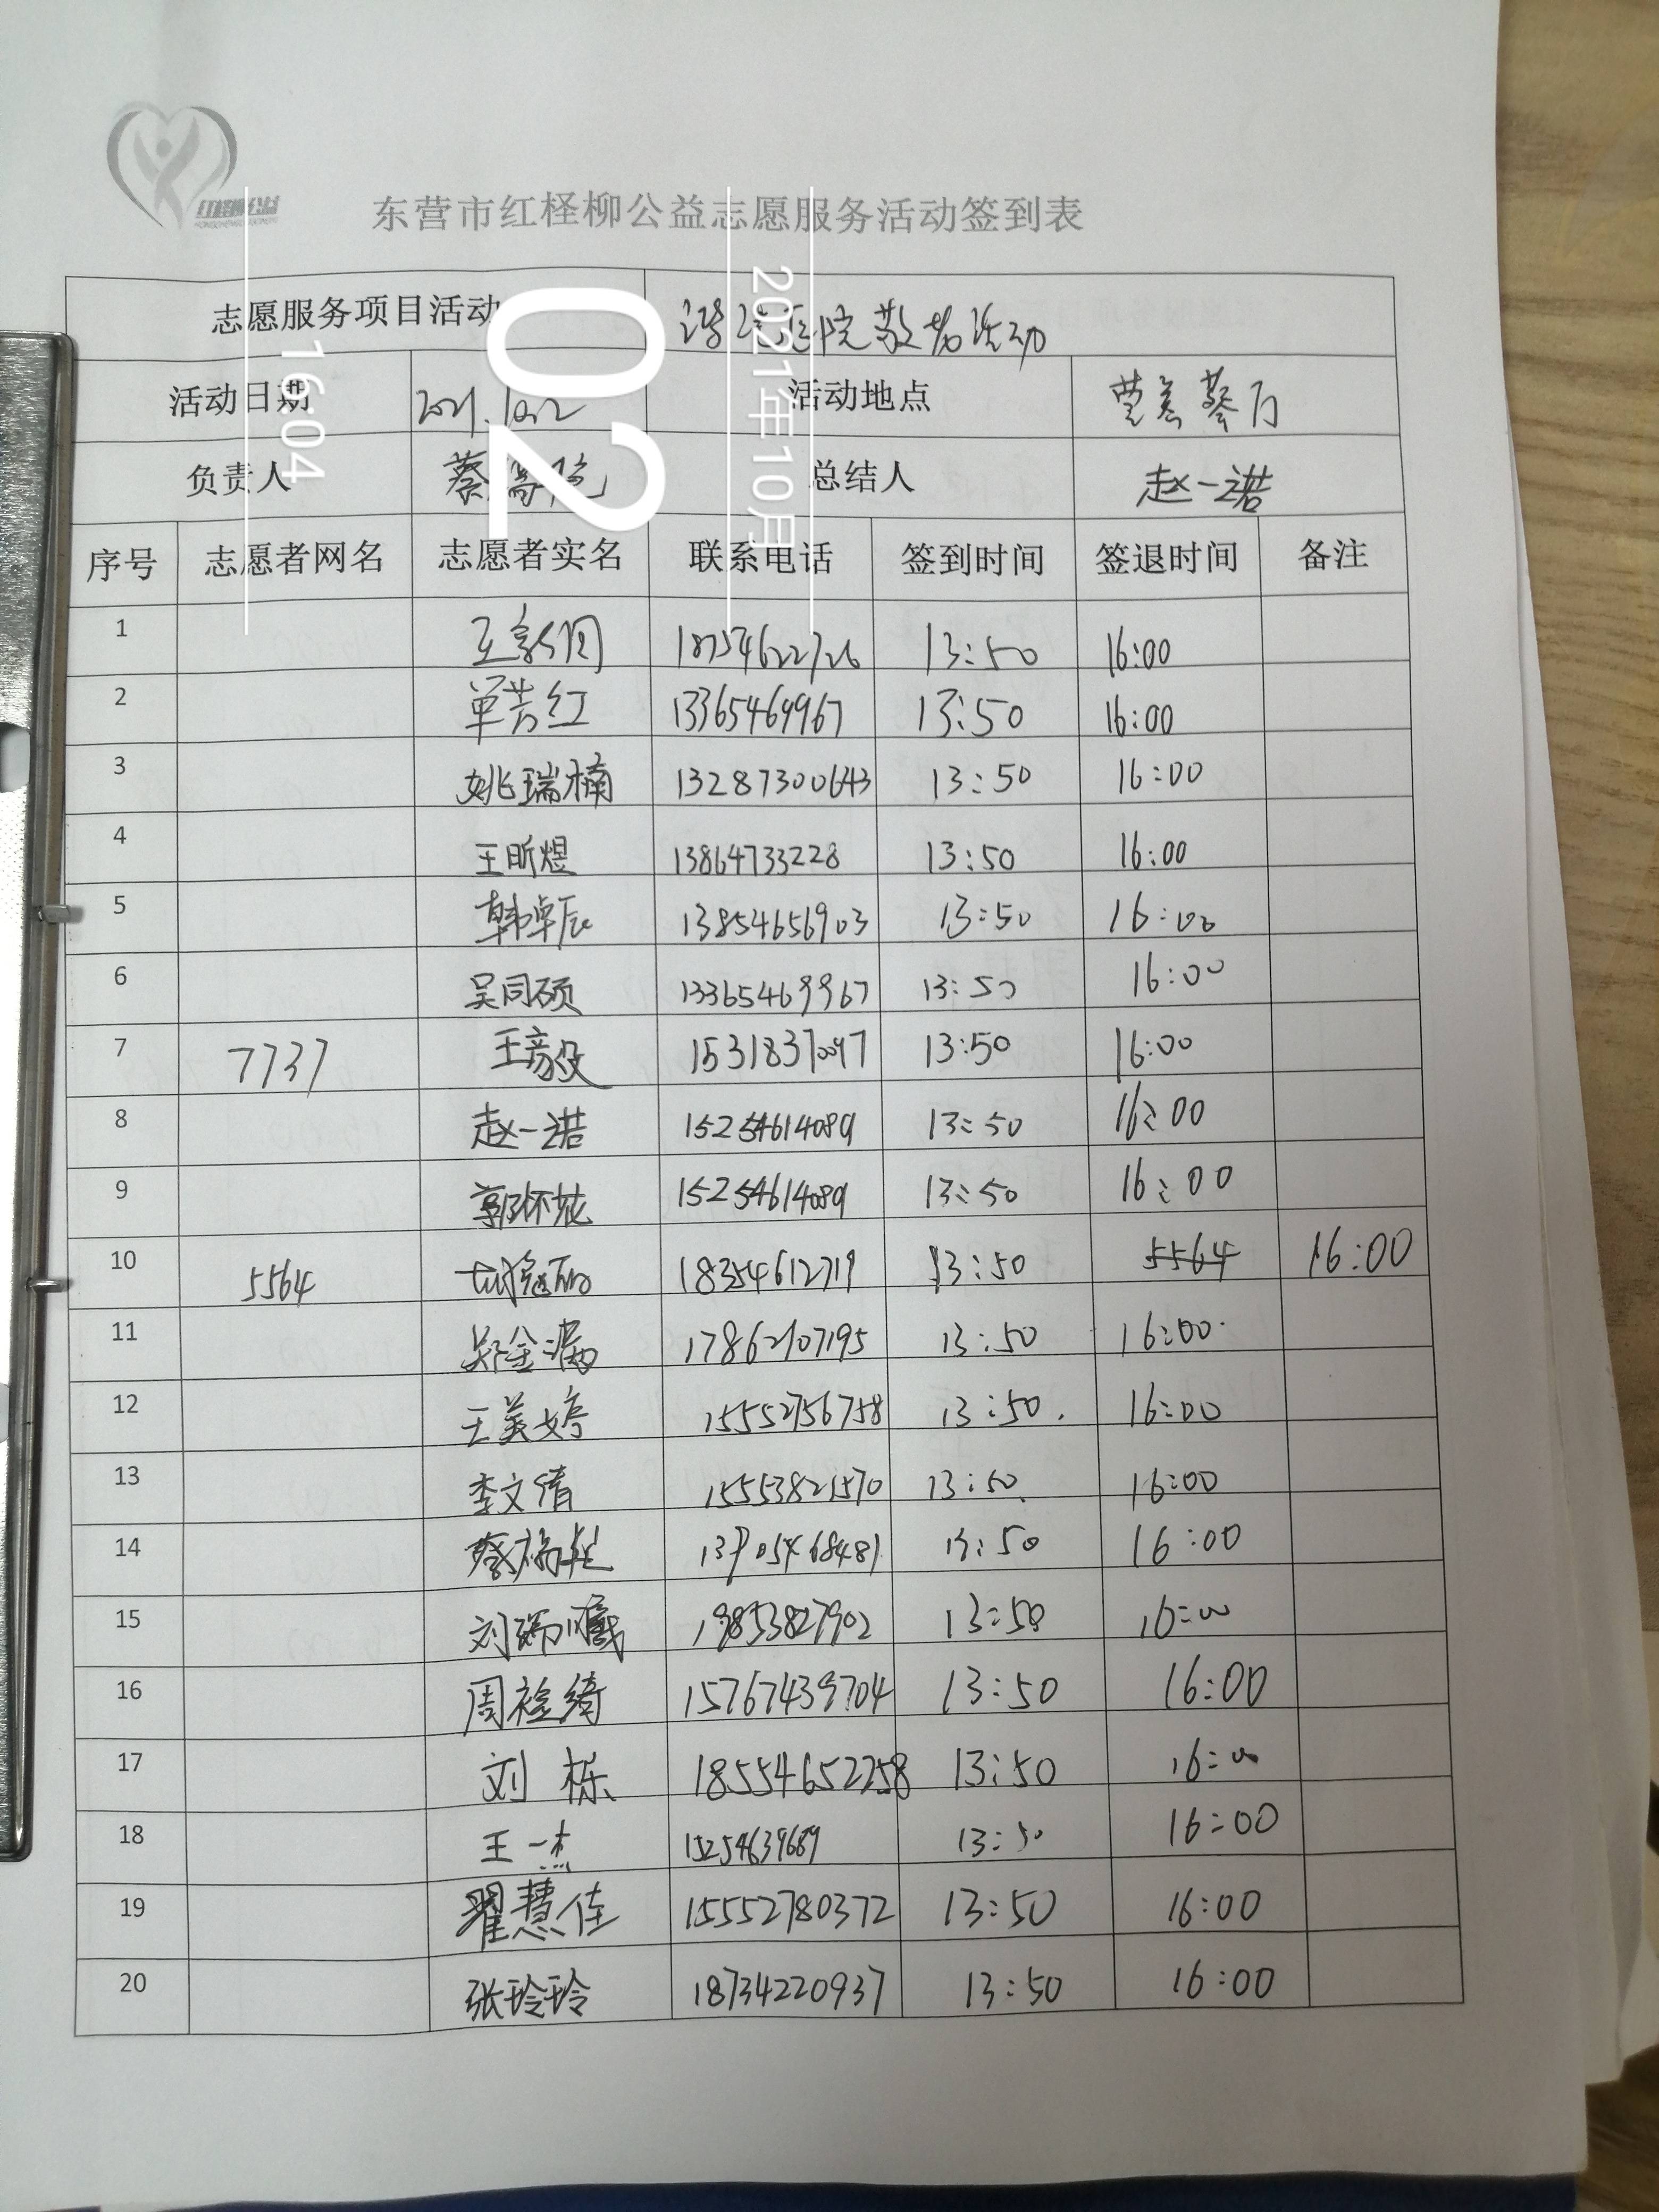 红柽柳公益
东营市红柽柳公益志愿服务活动签到表
志愿服务项目活动 医院敬老活动
活动日期 2021.10.2 活动地点
负责人 蔡 总结人 赵一诺
序号 志愿者网名 志愿者实名 联系电话 签到时间 签退时间 备注
1 13:50 16:00
2 单芳红 13365469967 13:50 16:00
3 姚瑞楠 13287300643 13:50 16:00
4 王昕煜 13864733228 13:50 16:00
5 韩卓辰 13854656903 13:50 16:00
6 吴同硕 13365469967 13:50 16:00
7 7737 王彦 15318370097 13:50 16:00
8 赵一诺 15254614089 13:50 16:00
9 郭怀 15254614089 13:50 16:00
10 5564 18354612719 13:50 5564 16:00
11 郑金 17862107195 13:50 16:00
12 王美婷 15552756758 13:50 16:00
13 李文倩 15553821570 13:50 16:00
14 蔡 13:50 16:00
15 刘 19853827902 13:50 16:00
16 周 15767439704 13:50 16:00
17 刘栎 18554652258 13:50 16:00
18 王一杰 15254639689 13:50 16:00
19 翟慧佳 15552780372 13:50 16:00
20 张玲玲 18734220937 13:50 16:00
2021年10月
02
16:04